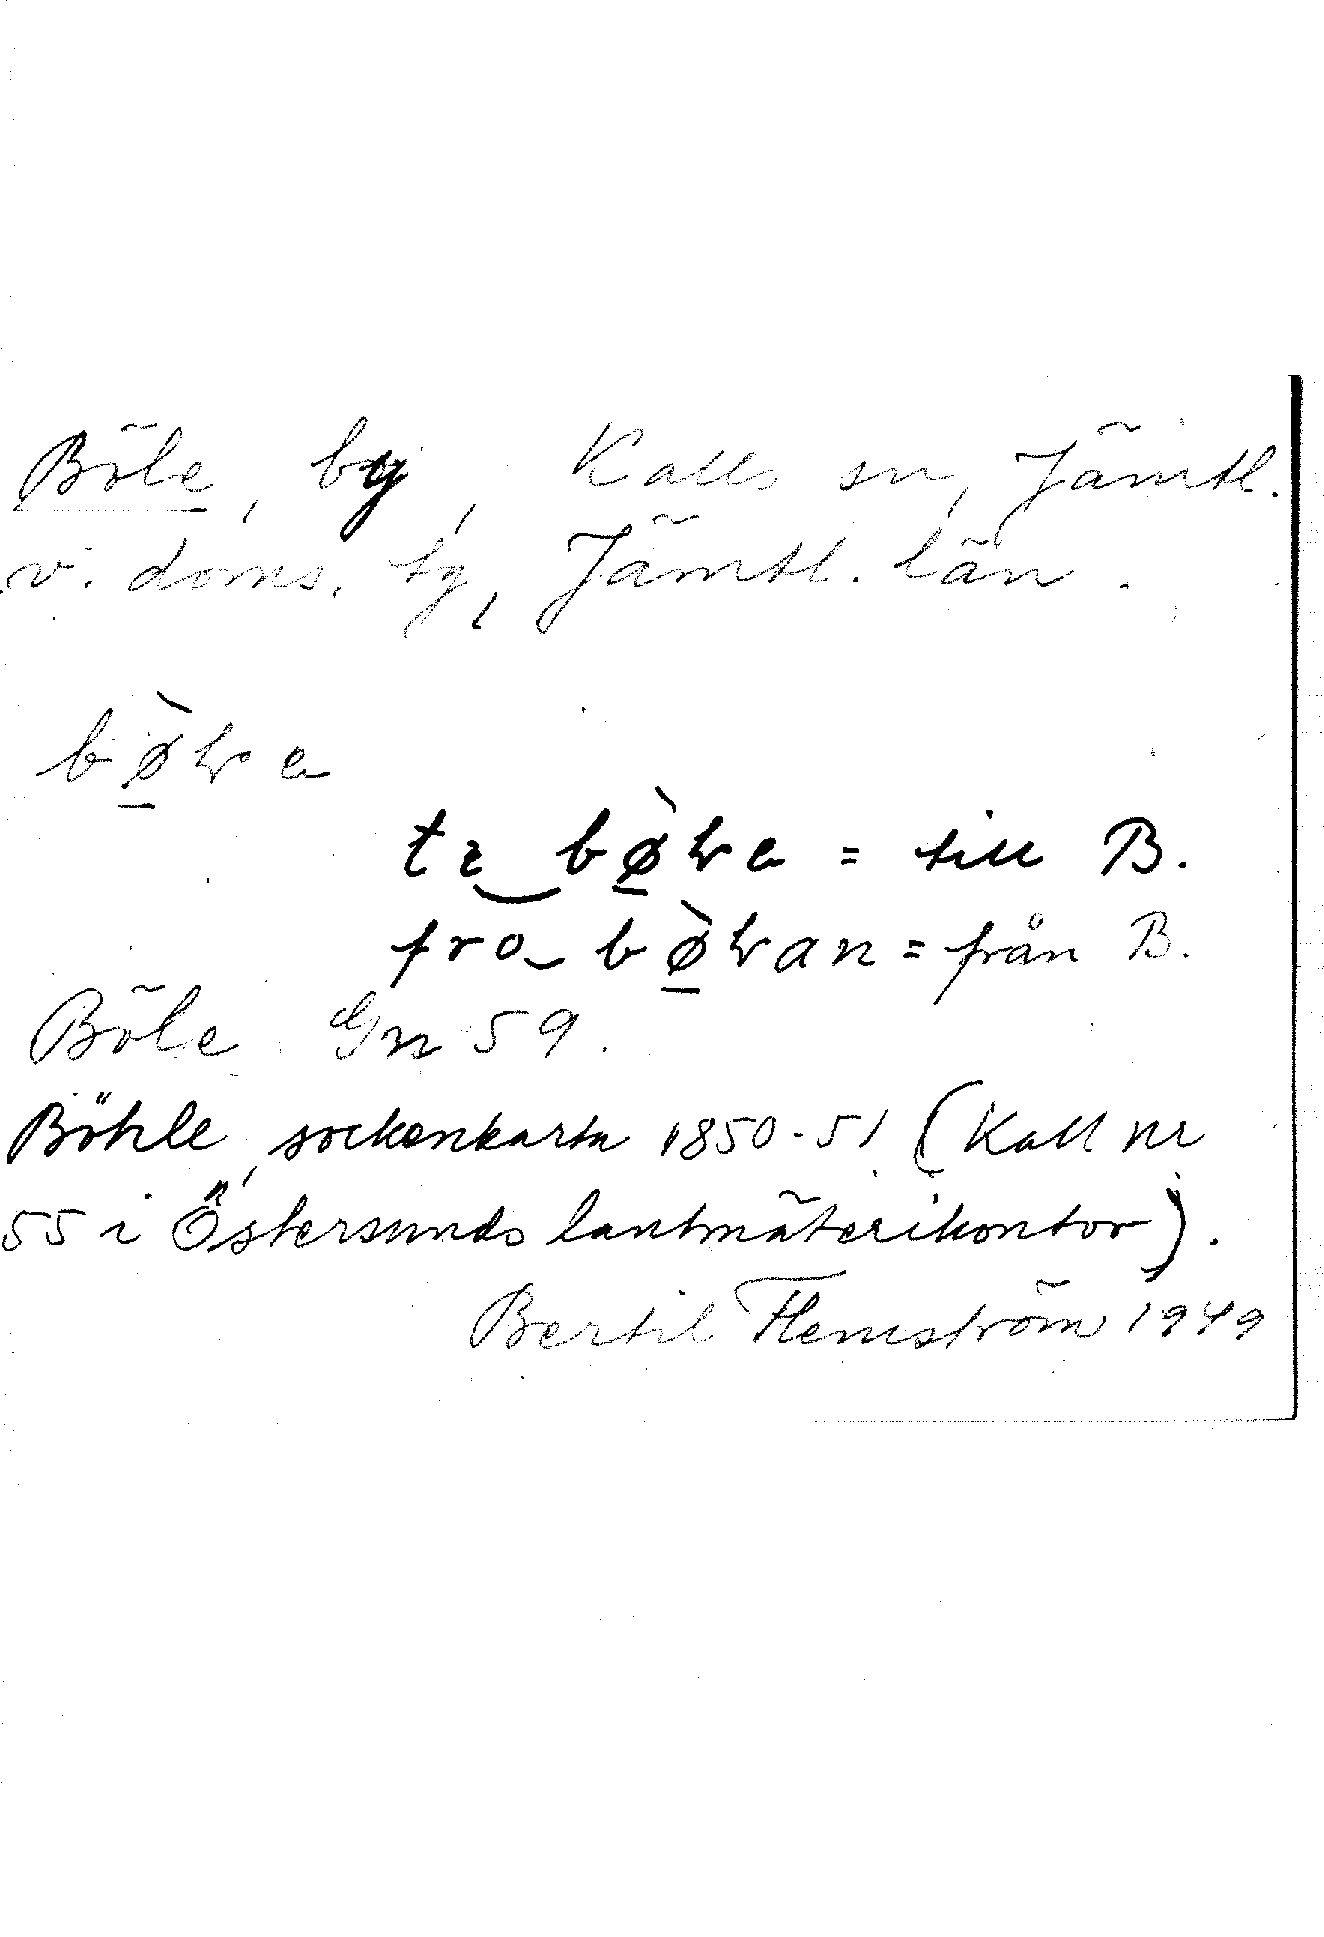 Böle, by, Kalls sn, Jämtl.
v. doms. tg, Jämtl. län.
= till B.
= från B.
Böle Gn 59.
Böhle, sockenkarta 1850-51 (Kall nr
55 i Östersunds lantmäterikontor).
Bertil Flemström 1949